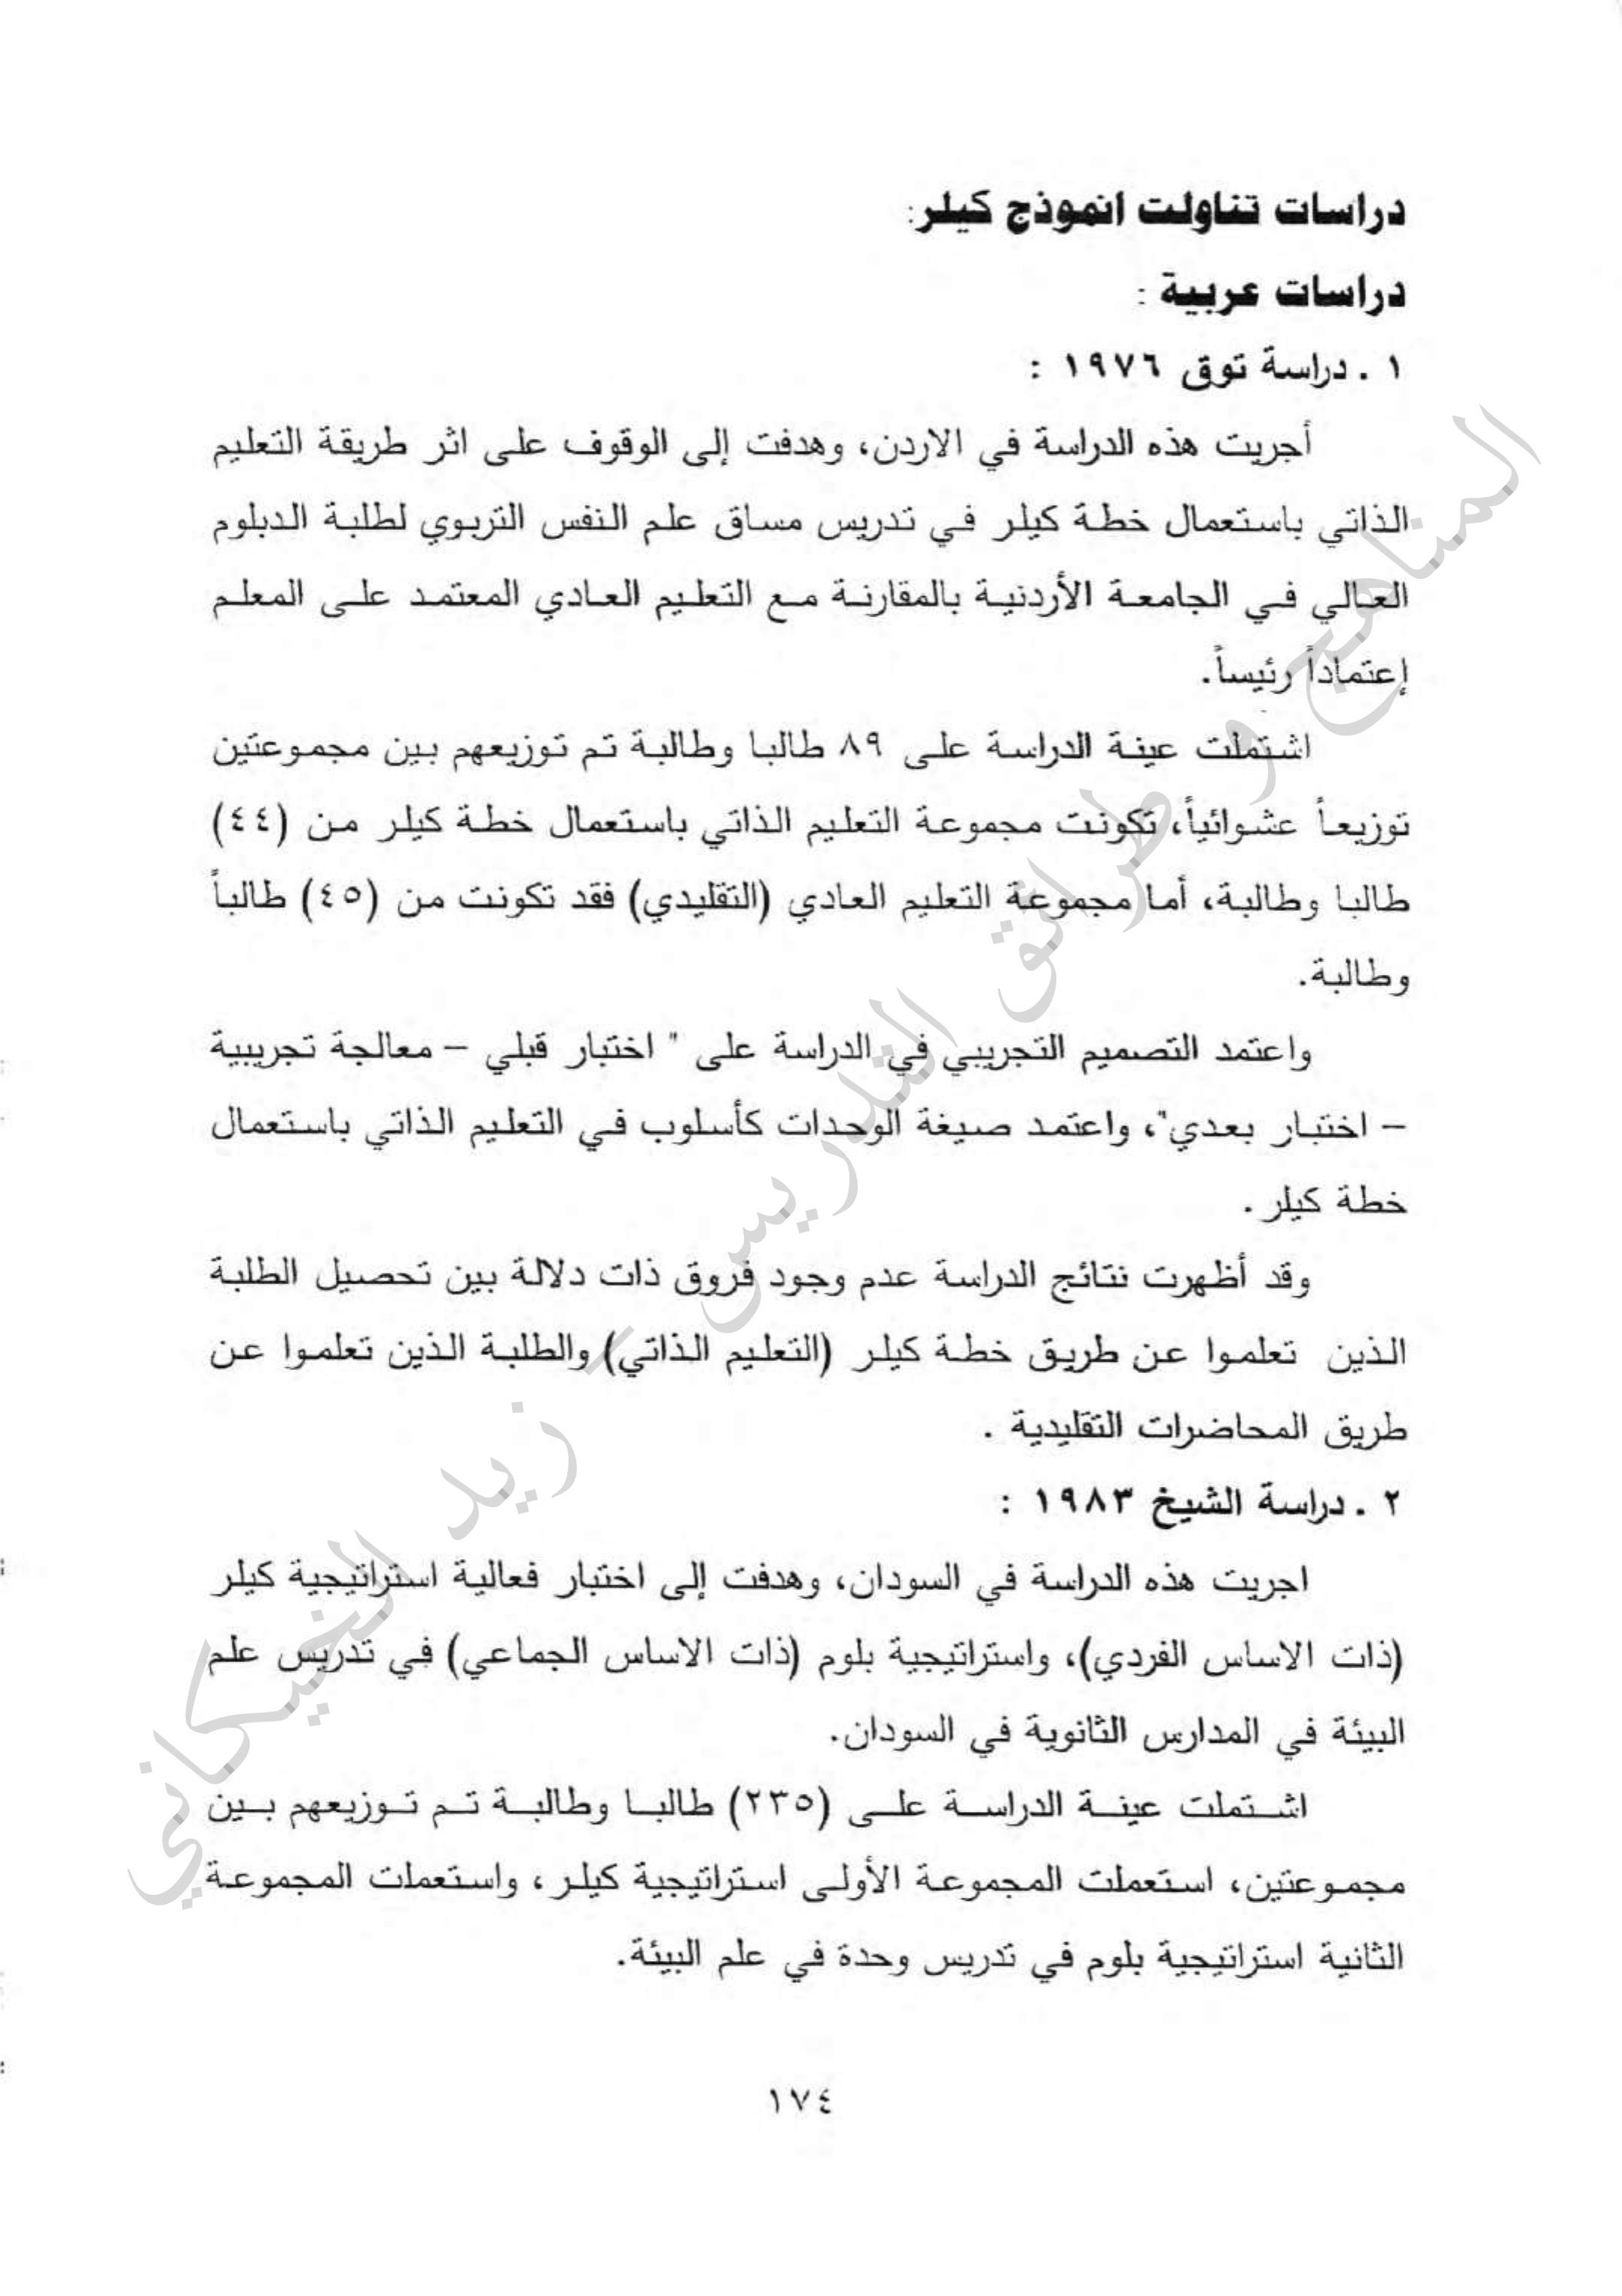 دراسات تناولت انموذج كيلر:
دراسات عربية :
١ . دراسة توق ١٩٧٦ :
أجريت هذه الدراسة في الاردن، وهدفت إلى الوقوف على اثر طريقة التعليم
الذاتي باستعمال خطة كيلر في تدريس مساق علم النفس التربوي لطلبة الدبلوم
العالي في الجامعة الأردنية بالمقارنة مع التعليم العادي المعتمد على المعلم
إعتماداً رئيساً.
اشتملت عينة الدراسة على ٨٩ طالبا وطالبة تم توزيعهم بين مجموعتين
توزيعاً عشوائياً، تكونت مجموعة التعليم الذاتي باستعمال خطة كيلر من (٤٤)
طالبا وطالبة، أما مجموعة التعليم العادي (التقليدي) فقد تكونت من (٤٥) طالباً
وطالبة.
واعتمد التصميم التجريبي في الدراسة على " اختبار قبلي – معالجة تجريبية
– اختبار بعدي"، واعتمد صيغة الوحدات كأسلوب في التعليم الذاتي باستعمال
خطة كيلر .
وقد أظهرت نتائج الدراسة عدم وجود فروق ذات دلالة بين تحصيل الطلبة
الذين تعلموا عن طريق خطة كيلر (التعليم الذاتي) والطلبة الذين تعلموا عن
طريق المحاضرات التقليدية .
٢ . دراسة الشيخ ١٩٨٣ :
اجريت هذه الدراسة في السودان، وهدفت إلى اختبار فعالية استراتيجية كيلر
(ذات الاساس الفردي)، واستراتيجية بلوم (ذات الاساس الجماعي) في تدريس علم
البيئة في المدارس الثانوية في السودان.
اشتملت عينة الدراسة على (٢٣٥) طالبا وطالبة تم توزيعهم بين
مجموعتين، استعملت المجموعة الأولى استراتيجية كيلر، واستعملت المجموعة
الثانية استراتيجية بلوم في تدريس وحدة في علم البيئة.
١٧٤
المناهج و طرائق التدريس – زيد الخيكاني